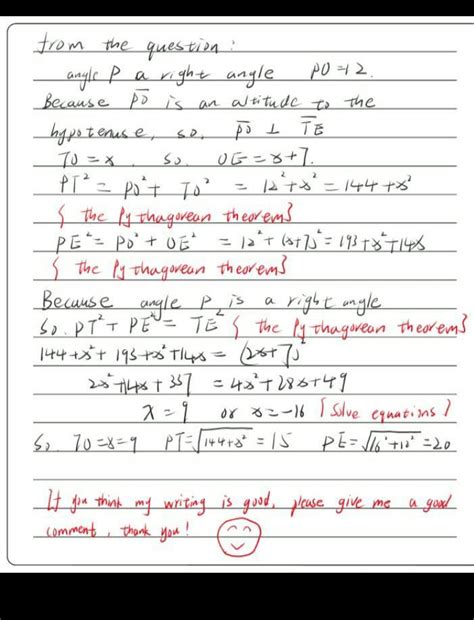 from the question:
angle P a right angle PO=12.
Because PO is an altitude to the
hypotenuse, so, PO ⊥ TE
TO = x. So. OE = x+7.
PT² = PO² + TO² = 12²+x² = 144+x²
{ the Pythagorean theorem}
PE² = PO² + OE² = 12²+(x+7)² = 193+x²+14x
{ the Pythagorean theorem}
Because angle P is a right angle
So. PT²+PE² = TE² { the Pythagorean theorem}
144+x²+193+x²+14x = (2x+7)²
2x²+14x+337 = 4x²+28x+49
x=9 or x=-16 {Solve equations}
So TO=x=9 PT=√144+x² = 15 PE=√16²+12² = 20
If you think my writing is good, please give me a good
comment, thank you!